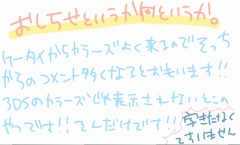 おしらせというか何というか。
ケータイからカラーズよく来るのでそっち
からのコメント多くなるとおもいます!!
3DSのカラーズじゃ表示されないとこの
やつです!!そんだけです!!
字きたなくてすいません